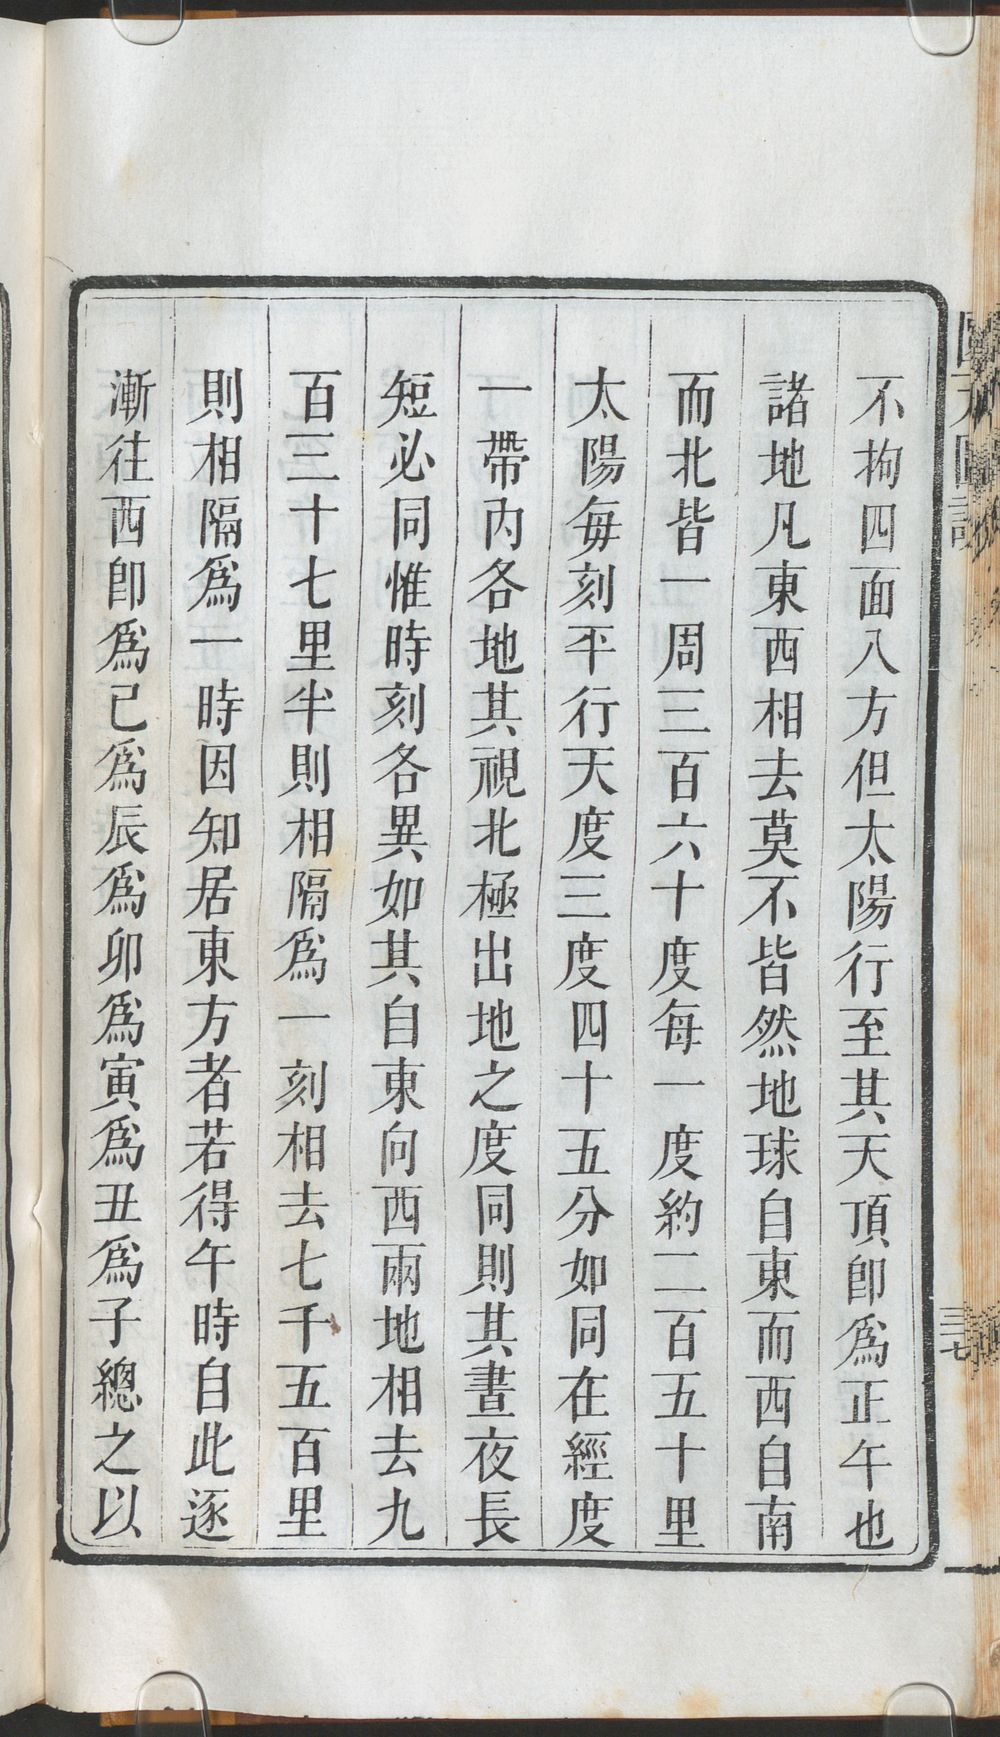 不拘四面八方但太陽行至其天頂卽爲正午也
諸地凡東西相去莫不皆然地球自東而西自南
而北皆一周三百六十度每一度約二百五十里
太陽每刻平行天度三度四十五分如同在經度
一帶內各地其視北極出地之度同則其晝夜長
短必同惟時刻各異如其自東向西兩地相去九
百三十七里半則相隔爲一刻相去七千五百里
則相隔爲一時因知居東方者若得午時自此逐
漸往西卽爲己爲辰爲卯爲寅爲丑爲子總之以